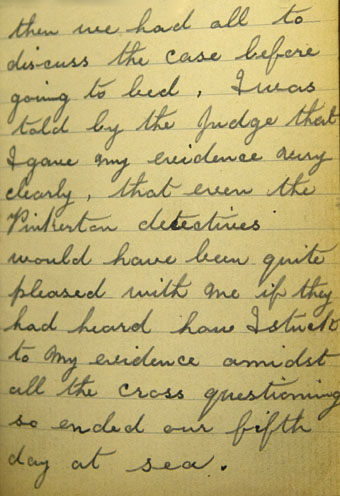 then we had all to
discuss the case before
going to bed, I was
told by the Judge that
I gave my evidence very
clearly, that even the
Pinkerton detectives
would have been quite
pleased with me if they
had heard how I stuck
to my evidence amidst
all the cross questioning
so ended our fifth
day at sea.